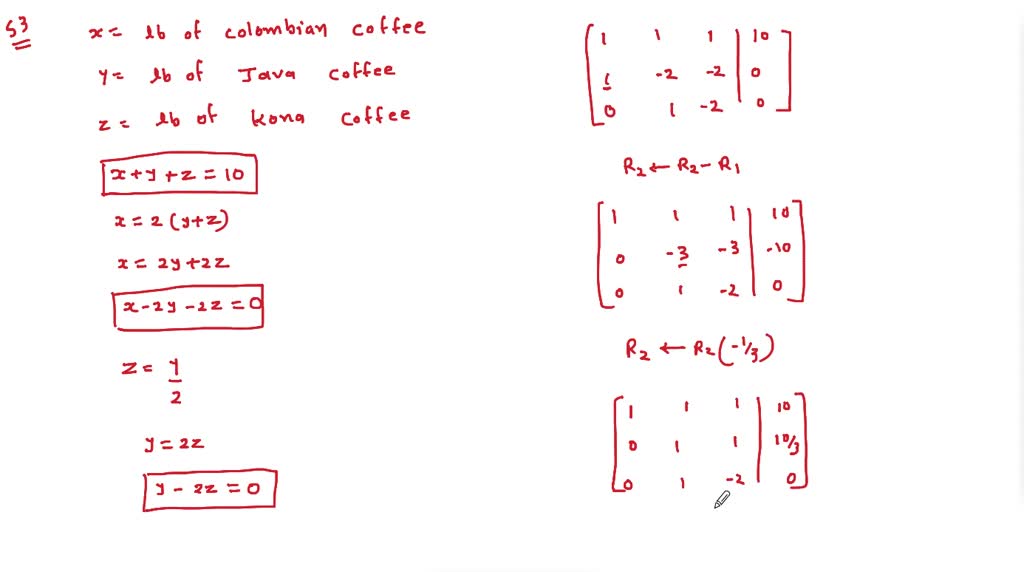 53
x = lb of colombian coffee
y = lb of Java coffee
z = lb of kona coffee
x+y+z = 10
x = 2(y+z)
x = 2y+2z
x-2y-2z = 0
z = y/2
y = 2z
y - 2z = 0
[ 1 1 1 | 10 ]
[ 1 -2 -2 | 0 ]
[ 0 1 -2 | 0 ]
R₂ ← R₂ - R₁
[ 1 1 1 | 10 ]
[ 0 -3 -3 | -10 ]
[ 0 1 -2 | 0 ]
R₂ ← R₂(-1/3)
[ 1 1 1 | 10 ]
[ 0 1 1 | 10/3 ]
[ 0 1 -2 | 0 ]